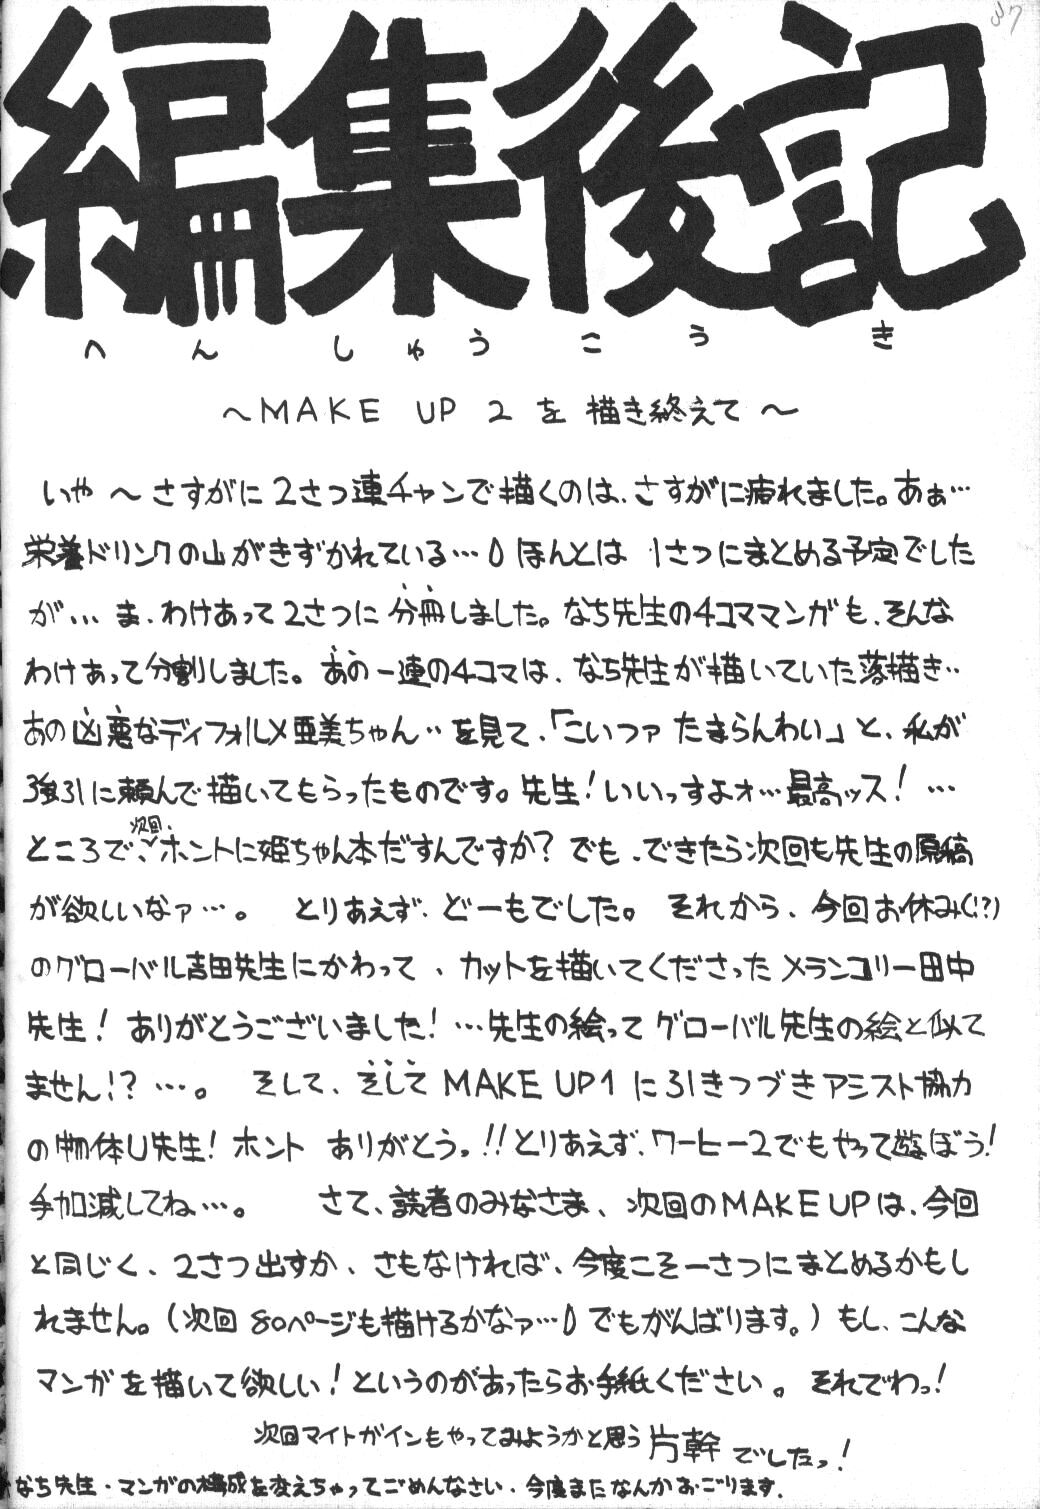 37
編集後記
へんしゅうこうき
～MAKE UP 2 を 描き終えて～
いや～さすがに2さつ連チャンで描くのは、さすがに疲れました。あぁ…
栄養ドリンクの山がきずかれている… ほんとは 1さつにまとめる予定でした
が… ま、わけあって2さつに分冊しました。なち先生の4コママンガも、そんな
わけあって分割しました。あの一連の4コマは、なち先生が描いていた落描き…
あの凶悪なディフォルメ亜美ちゃん…を見て、「こいつァ たまらんわい」と、私が
強引に頼んで描いてもらったものです。先生！いいっすよォ…最高ッス！…
ところで、次回、ホントに姫ちゃん本だすんですか？でも、できたら次回も先生の原稿
が欲しいなァ…。 とりあえず、どーもでした。 それから、今回お休み(!?)
のグローバル吉田先生にかわって、カットを描いてくださったメランコリー田中
先生！ありがとうございました！…先生の絵ってグローバル先生の絵と似て
ません!？…。 そして、そしてMAKE UP1に引きつづきアシスト協力
の物体U先生！ホント ありがとう。!!とりあえず、ワーヒー2でもやって遊ぼう！
手加減してね…。 さて、読者のみなさま、次回のMAKE UPは、今回
と同じく、2さつ出すか、さもなければ、今度こそ一さつにまとめるかもし
れません。(次回80ページも描けるかなァ… でもがんばります。) もし、こんな
マンガを描いて欲しい！というのがあったらお手紙ください。それでわっ！
次回マイトガインもやってみようかと思う片幹でしたっ！
なち先生・マンガの構成を変えちゃってごめんなさい、今度またなんかおごります。